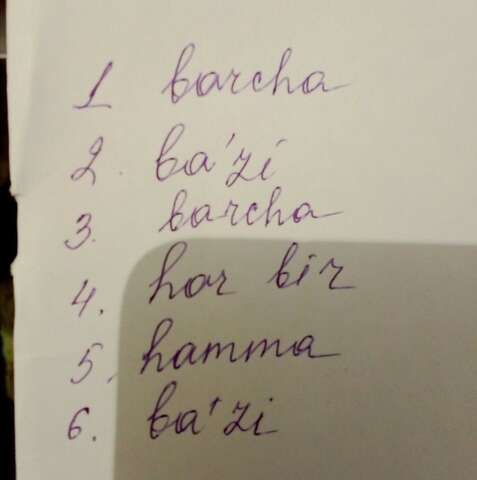 1 barcha
2. ba'zi
3. barcha
4. har bir
5. hamma
6. ba'zi